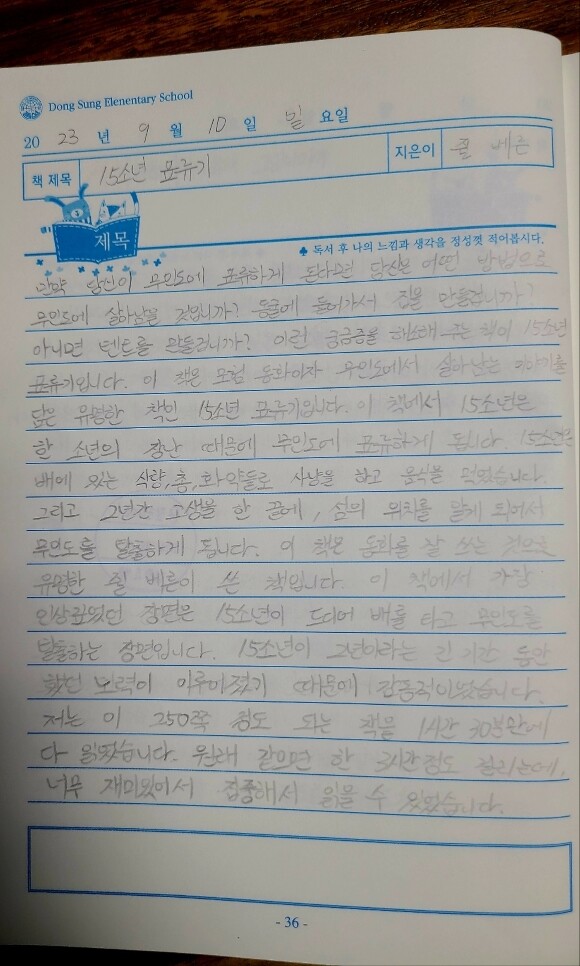 Dong Sung Elenentary School
20 23 년 9 월 10 일 일 요일
책 제목 15소년 표류기 지은이 쥘 베른
제목
♣ 독서 후 나의 느낌과 생각을 정성껏 적어봅시다.
만약 당신이 무인도에 표류하게 된다면 당신은 어떤 방법으로
무인도에 살아남을 것입니까? 동굴에 들어가서 집을 만들겁니까?
아니면 텐트를 만들겁니까? 이런 궁금증을 해소해 주는 책이 15소년
표류기입니다. 이 책은 모험 동화이자 무인도에서 살아남는 이야기를
담은 유명한 책인 15소년 표류기입니다. 이 책에서 15소년은
한 소년의 장난 때문에 무인도에 표류하게 됩니다. 15소년은
배에 있는 식량,총,화약들로 사냥을 하고 음식을 먹었습니다.
그리고 2년간 고생을 한 끝에, 섬의 위치를 알게 되어서
무인도를 탈출하게 됩니다. 이 책은 동화를 잘 쓰는 것으로
유명한 쥘 베른이 쓴 책입니다. 이 책에서 가장
인상깊었던 장면은 15소년이 드디어 배를 타고 무인도를
탈출하는 장면입니다. 15소년이 2년이라는 긴 기간 동안
했던 노력이 이루어졌기 때문에 감동적이었습니다.
저는 이 250쪽 정도 되는 책을 1시간 30분만에
다 읽었습니다. 원래 같으면 한 3시간정도 걸리는데,
너무 재미있어서 집중해서 읽을 수 있었습니다.
- 36 -